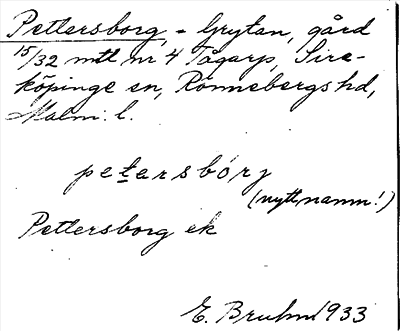 Pettersborg, = Grytan, gård
15/32 mtl nr 4 Tågarp, Sire-
köpinge sn, Rönnebergs hd,
Malm. l.
petarsbórj
(nytt namn!)
Pettersborg ek
E. Bruhn 1933